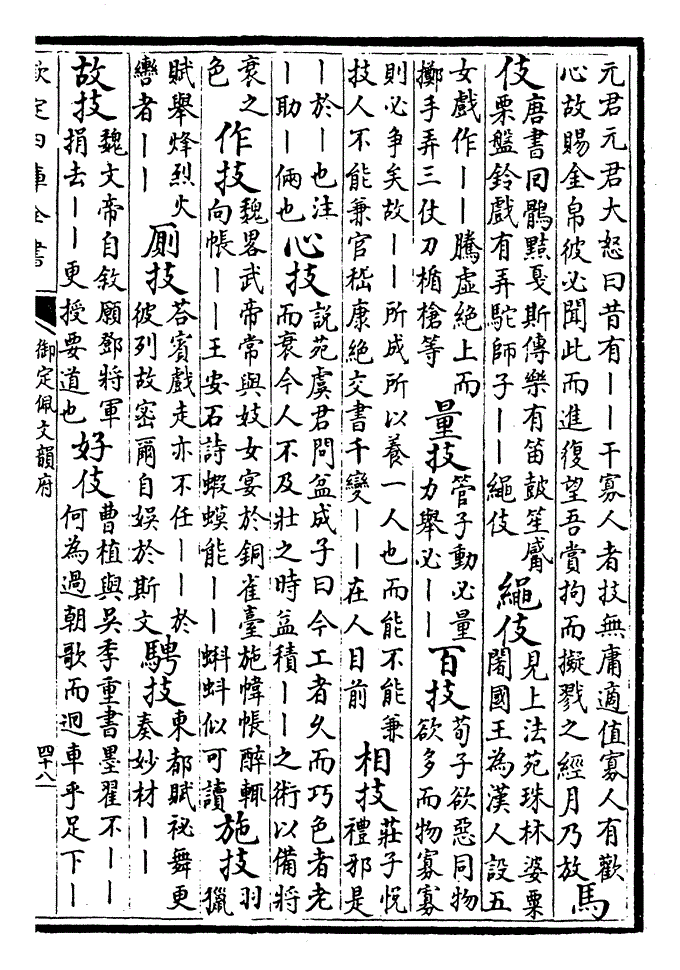 元君元君大怒曰昔有｜｜干寡人者技無庸適值寡人有歡
心故賜金帛彼必聞此而進復望吾賞拘而擬戮之經月乃放
馬
伎
唐書回鶻黠戛斯傳樂有笛鼓笙觱
栗盤鈴戲有弄駝師子｜｜繩伎
繩伎
見上法苑珠林婆栗
闍國王為漢人設五
女戲作｜｜騰虛絕上而
擲手弄三仗刀楯槍等
量技
管子動必量
力舉必｜｜
百技
荀子欲惡同物
欲多而物寡寡
則必爭矣故｜｜所成所以養一人也而能不能兼
技人不能兼官嵇康絕交書千變｜｜在人目前
相技
莊子悅
禮邪是
｜於｜也注
｜助｜倆也
心技
說苑虞君問盆成子曰今工者久而巧色者老
而衰今人不及壯之時益積｜｜之術以備將
衰之
色
作技
魏畧武帝常與妓女宴於銅雀臺施幃帳醉輒
向帳｜｜王安石詩蝦蟆能｜｜蝌蚪似可讀
施技
羽
獵
賦舉烽烈火
轡者｜｜
厠技
荅賓戲走亦不任｜｜於
彼列故密爾自娛於斯文
騁技
東都賦祕舞更
奏妙材｜｜
故技
魏文帝自敘願鄧將軍
捐去｜｜更授要道也
好伎
曹植與吳季重書墨翟不｜｜
何為過朝歌而迴車乎足下｜
欽定四庫全書
御定佩文韻府
四十八